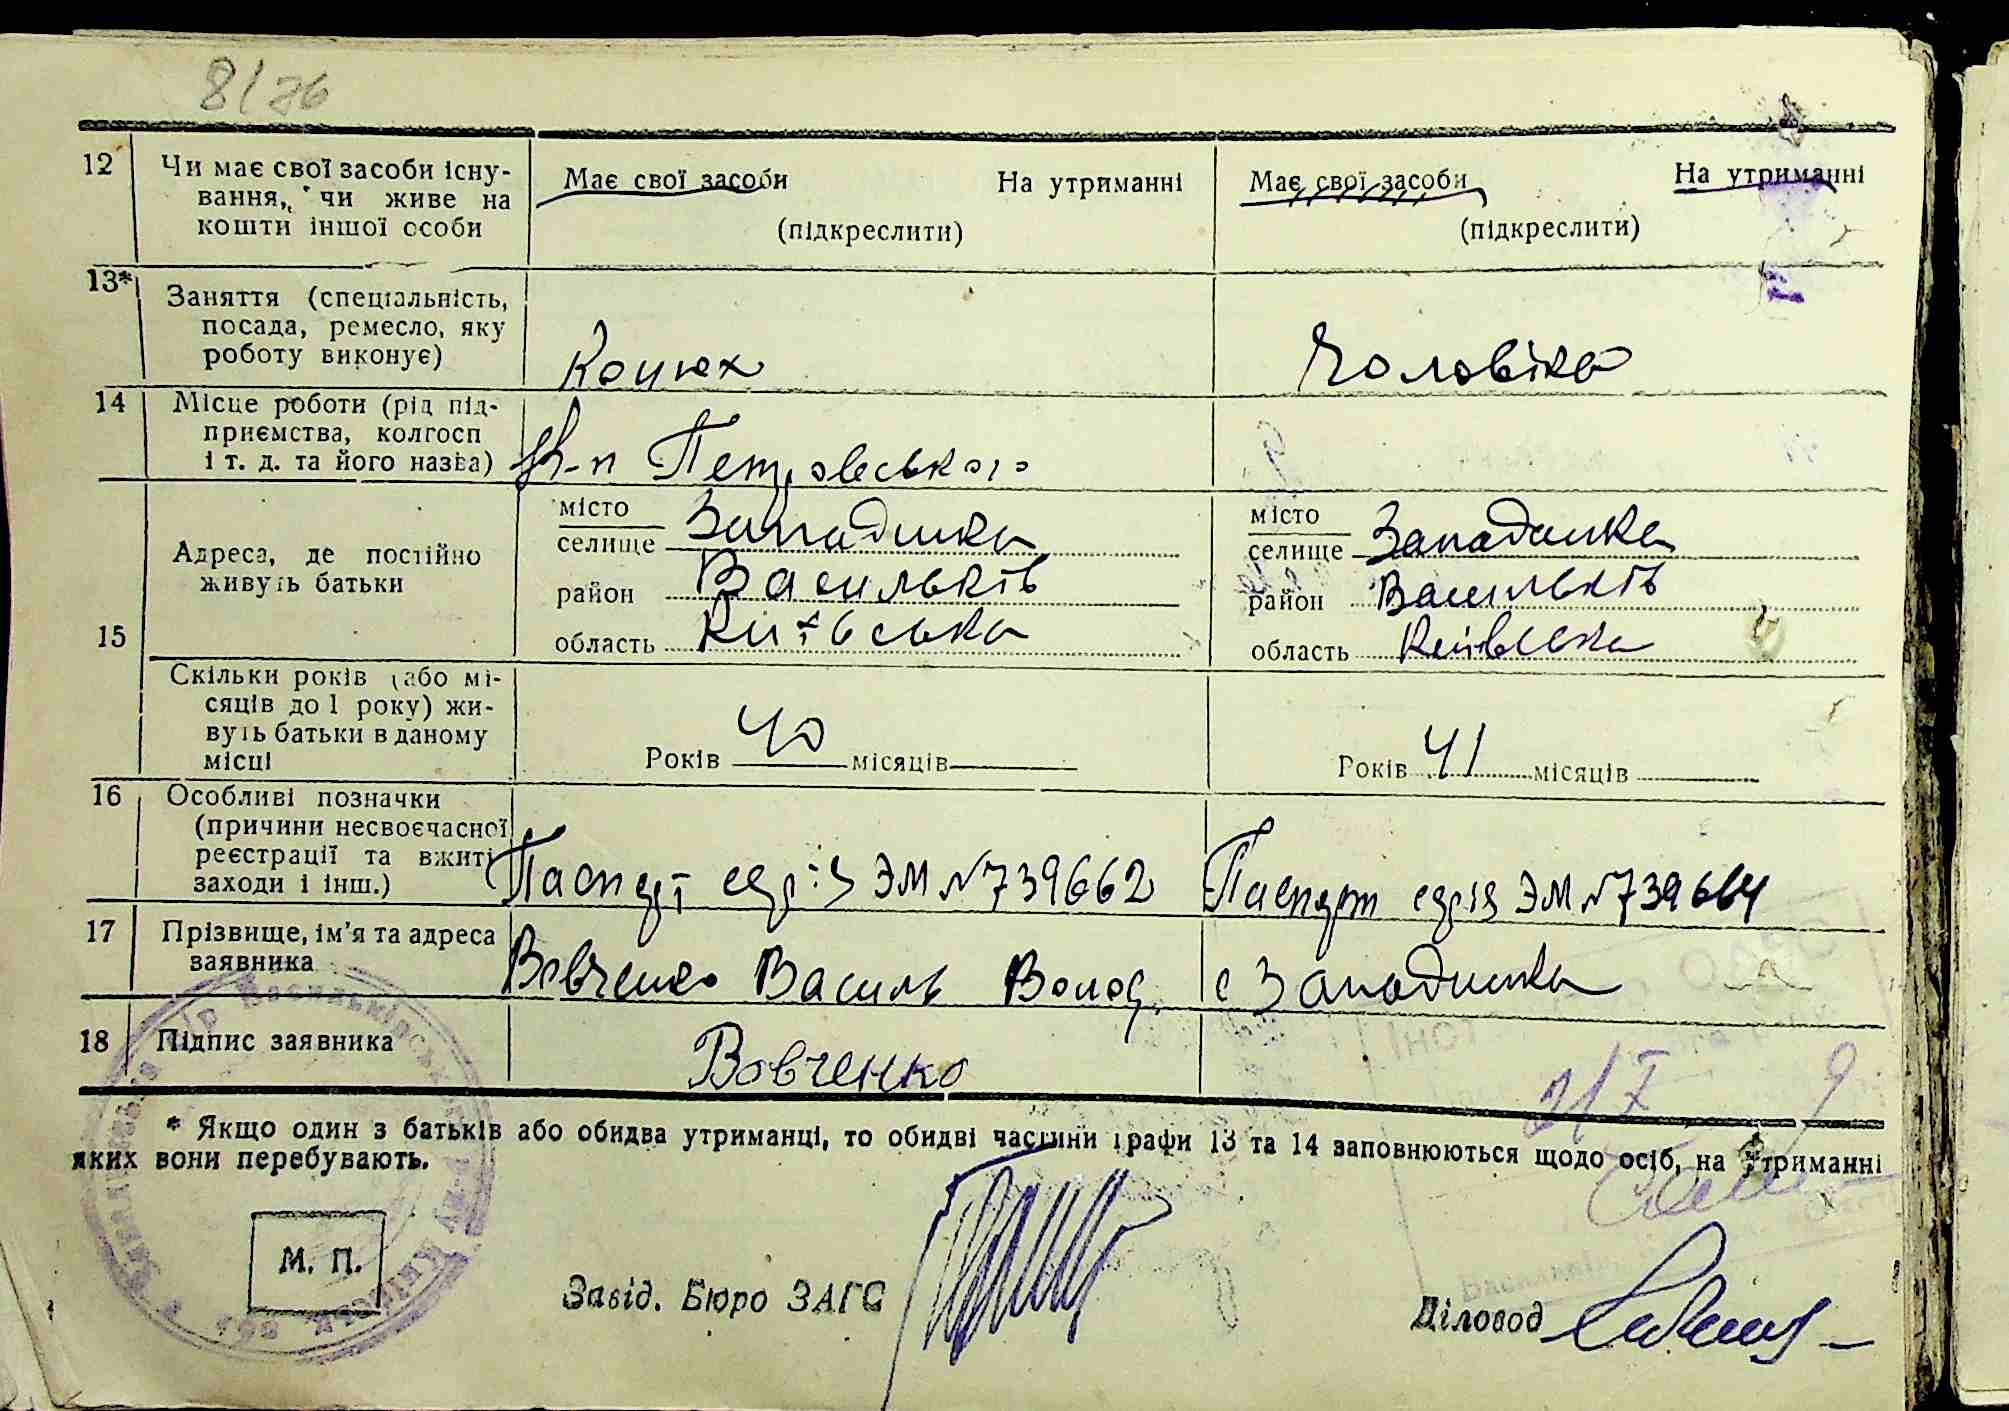 8/26
12 Чи має свої засоби існу- Має свої засоби На утриманні Має свої засоби На утриманні
вання, чи живе на
кошти іншої особи (підкреслити) (підкреслити)
13* Заняття (спеціальність,
посада, ремесло, яку
роботу виконує) Конюх Чоловіка
14 Місце роботи (рід під-
приємства, колгосп
і т. д. та його назва) к-п Петровського
15 Адреса, де постійно
живуть батьки
місто Западинка місто Западинка
селище селище
район Васильків район Васильків
область Київська область Київська
Скільки років (або мі-
сяців до 1 року) жи-
вуть батьки в даному
місці Років 40 місяців Років 41 місяців
16 Особливі позначки
(причини несвоєчасної
реєстрації та вжиті
заходи і інш.) Паспорт серія ЭМ №739662 Паспорт серія ЭМ №739664
17 Прізвище, ім'я та адреса
заявника Вовченко Василь Волод. с Западинка
18 Підпис заявника Вовченко
21/X 9
* Якщо один з батьків або обидва утриманці, то обидві частини графи 13 та 14 заповнюються щодо осіб, на утриманні
яких вони перебувають.
М. П.
Завід. Бюро ЗАГС Діловод